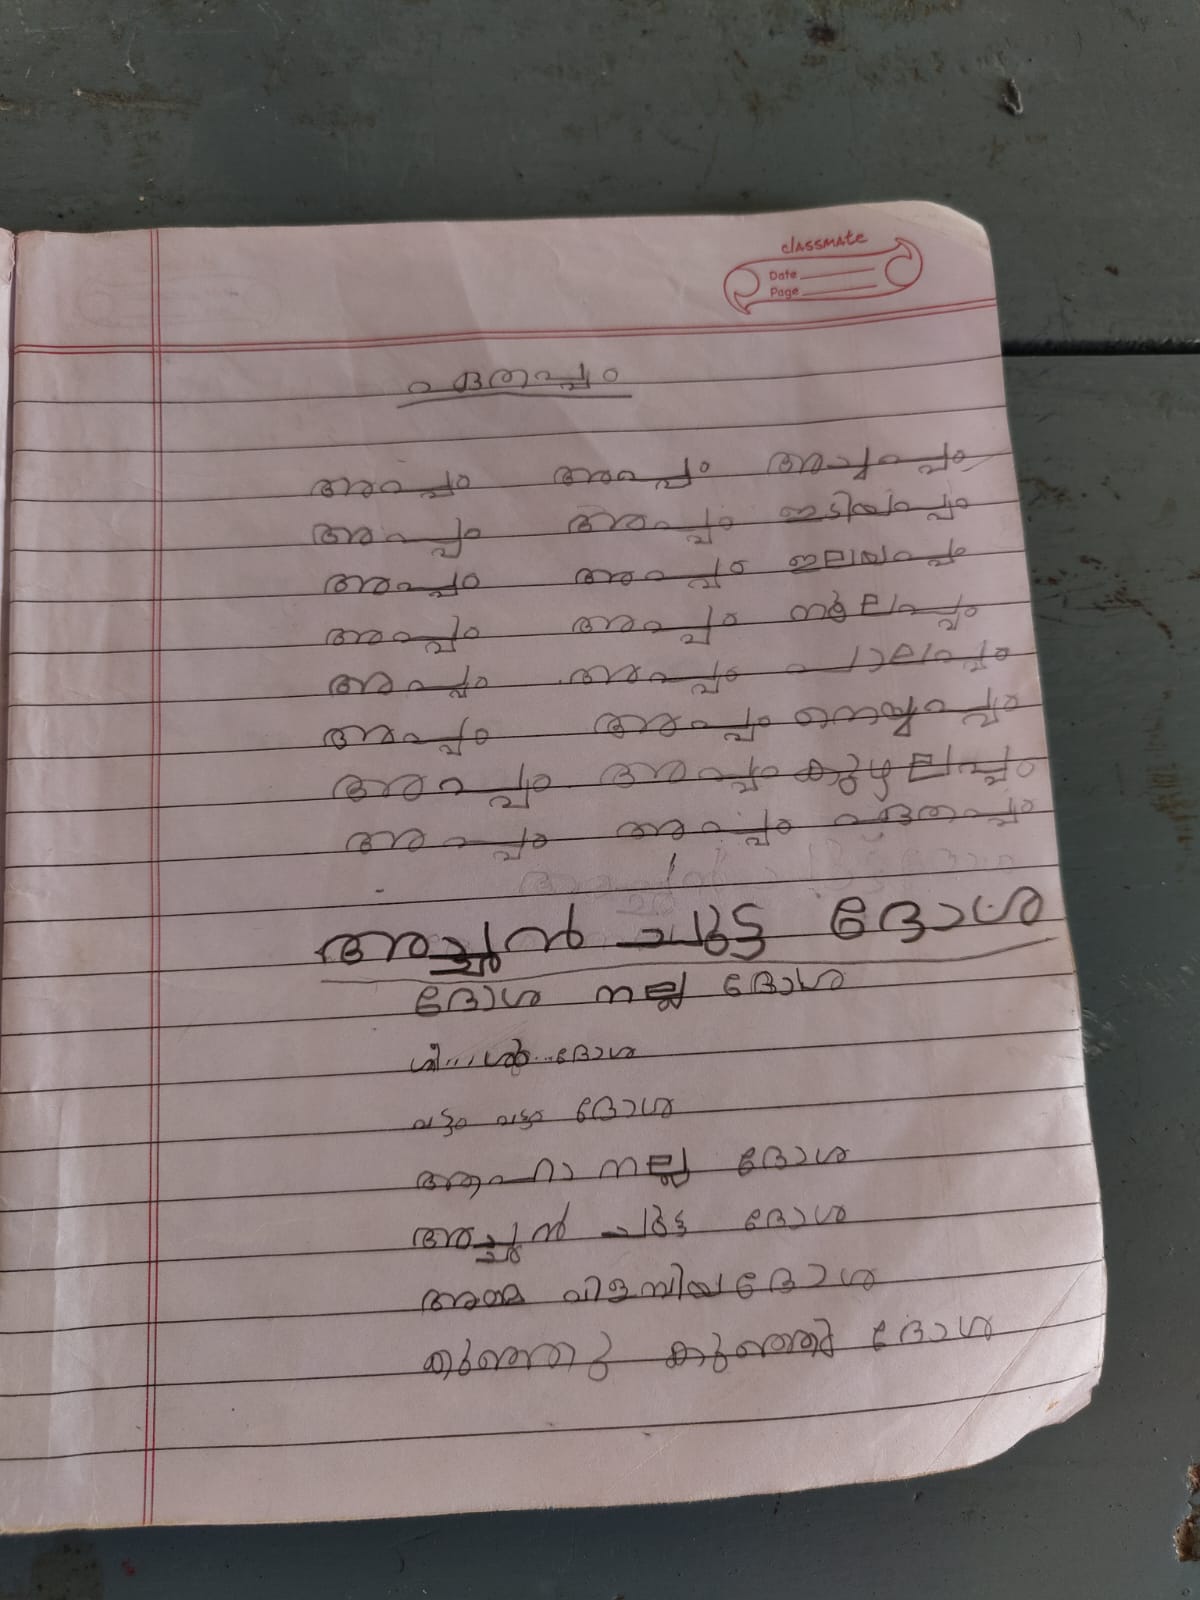 classmate
Date
Page
പത്തപ്പം
അപ്പം അപ്പം അച്ചപ്പം
അപ്പം അപ്പം ഇടിയപ്പം
അപ്പം അപ്പം ഇലയപ്പം
അപ്പം അപ്പം നൂലപ്പം
അപ്പം അപ്പം പാലപ്പം
അപ്പം അപ്പം നെയ്യപ്പം
അപ്പം അപ്പം കുഴലപ്പം
അപ്പം അപ്പം പത്തപ്പം
അച്ഛൻ ചുട്ട ദോശ
ദോശ നല്ല ദോശ
ശീ.... ദോശ
വട്ടം വട്ടം ദോശ
ആഹാ നല്ല ദോശ
അച്ഛൻ ചുട്ട ദോശ
അമ്മ വിളമ്പിയ ദോശ
കുഞ്ഞു ദോശ